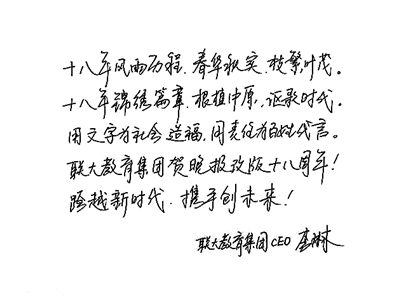 十八年风雨历程、春华秋实、枝繁叶茂。
十八年锦绣篇章、根植中原、讴歌时代。
用文字为社会造福、用责任为百姓代言。
联大教育集团贺晚报改版十八周年！
跨越新时代、携手创未来！
联大教育集团CEO